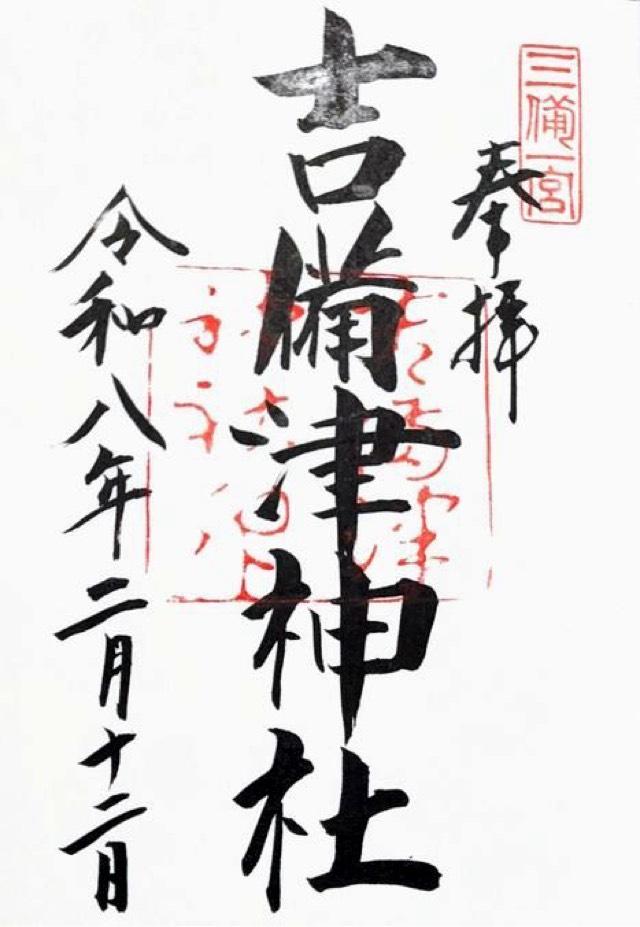 三備一宮
奉拝
吉備津神社
令和八年二月十二日